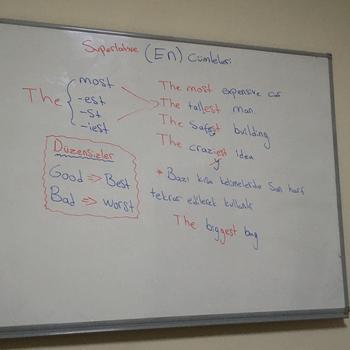 Superlative (EN) Cümleleri
The
most
-est
-st
-iest
The most expensive car
The tallest man
The safest building
The craziest idea
y
Düzensizler
Good => Best
Bad => worst
* Bazı kısa kelimelerde Son harf
tekrar edilerek kullanılır
The biggest bag